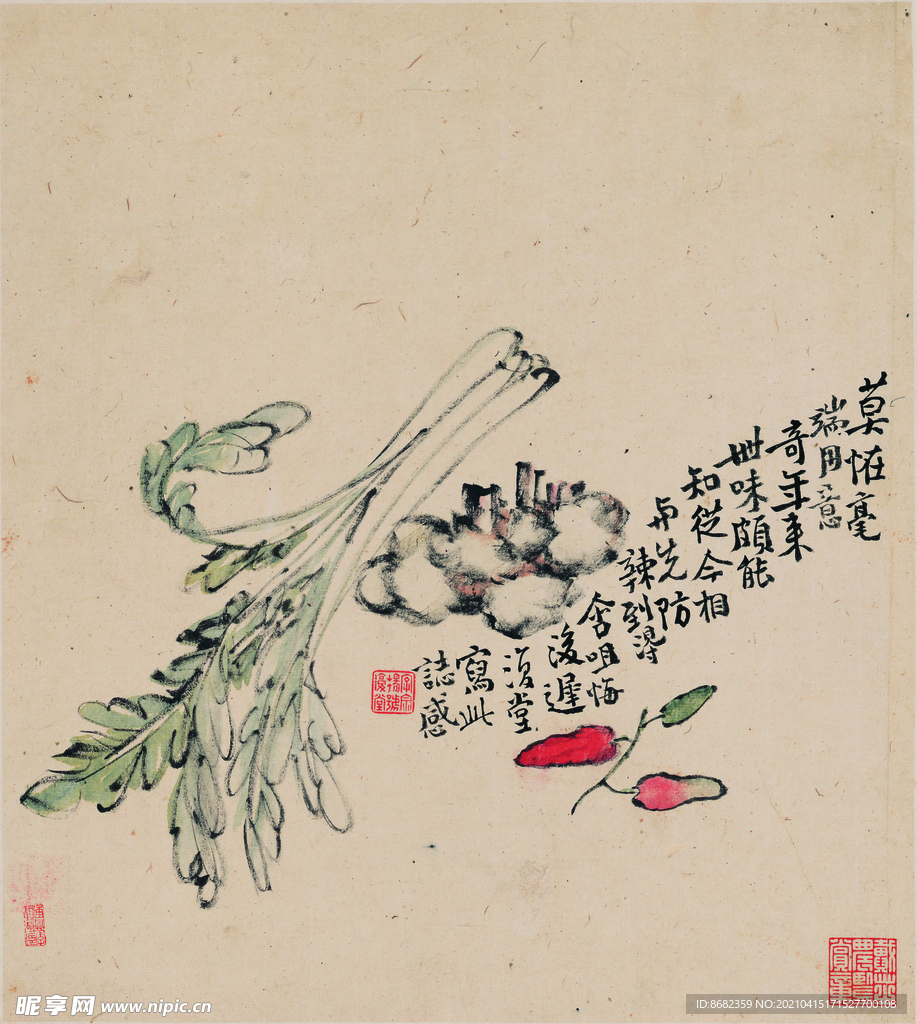 莫恠毫
端用意
奇年来
世味頗能
知從今相
与先防
辣到淂
含咀悔
後遲
復堂
寫此
誌感
字宗揚號復堂
昵享网 www.nipic.cn
ID:8682359 NO:20210415171527700108